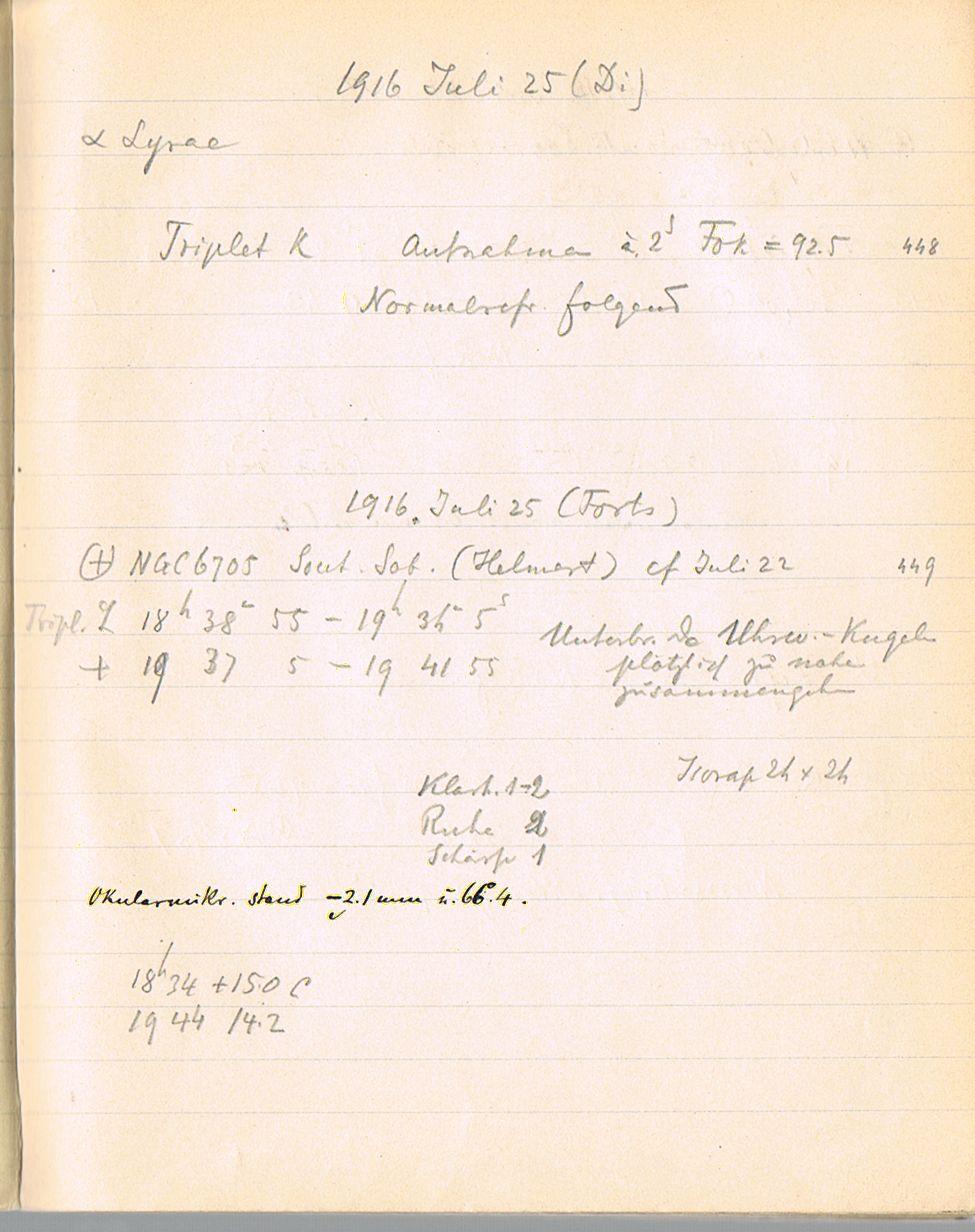 1916 Juli 25 (Di)
α Lyrae
Triplet K Aufnahmen à 2ˢ Fok = 92.5 448
Normalrefr. folgend
1916 Juli 25 (Forts)
⊕ NGC 6705 Scut. Sob. (Helmert) cf Juli 22 449
Tripl. L 18ʰ 38ᵐ 55 – 19ʰ 36ᵐ 5ˢ
+ 19 37 5 – 19 41 55
Unterbr. da Uhrw.-Kugeln
plötzlich zu nahe
zusammengehn
Klarh. 1-2
2h x 2h
Ruhe 2
Schärfe 1
Okularmikr. stand –2.1 mm u. 66.4.
18ʰ34 +15.0 C
19 44 14.2